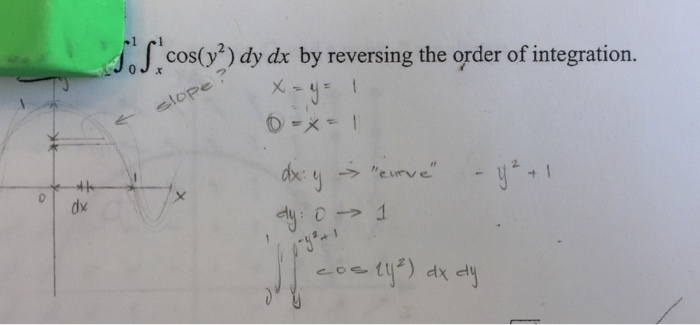 ∫₀¹ ∫ₓ¹ cos(y²) dy dx by reversing the order of integration.
slope?
x = y = 1
0 = x = 1
y
1
dx: y → "curve" - y² + 1
0 dx 1 x
dy: 0 → 1
∫₀¹ ∫ᵧ^(-y²+1) cos(y²) dx dy